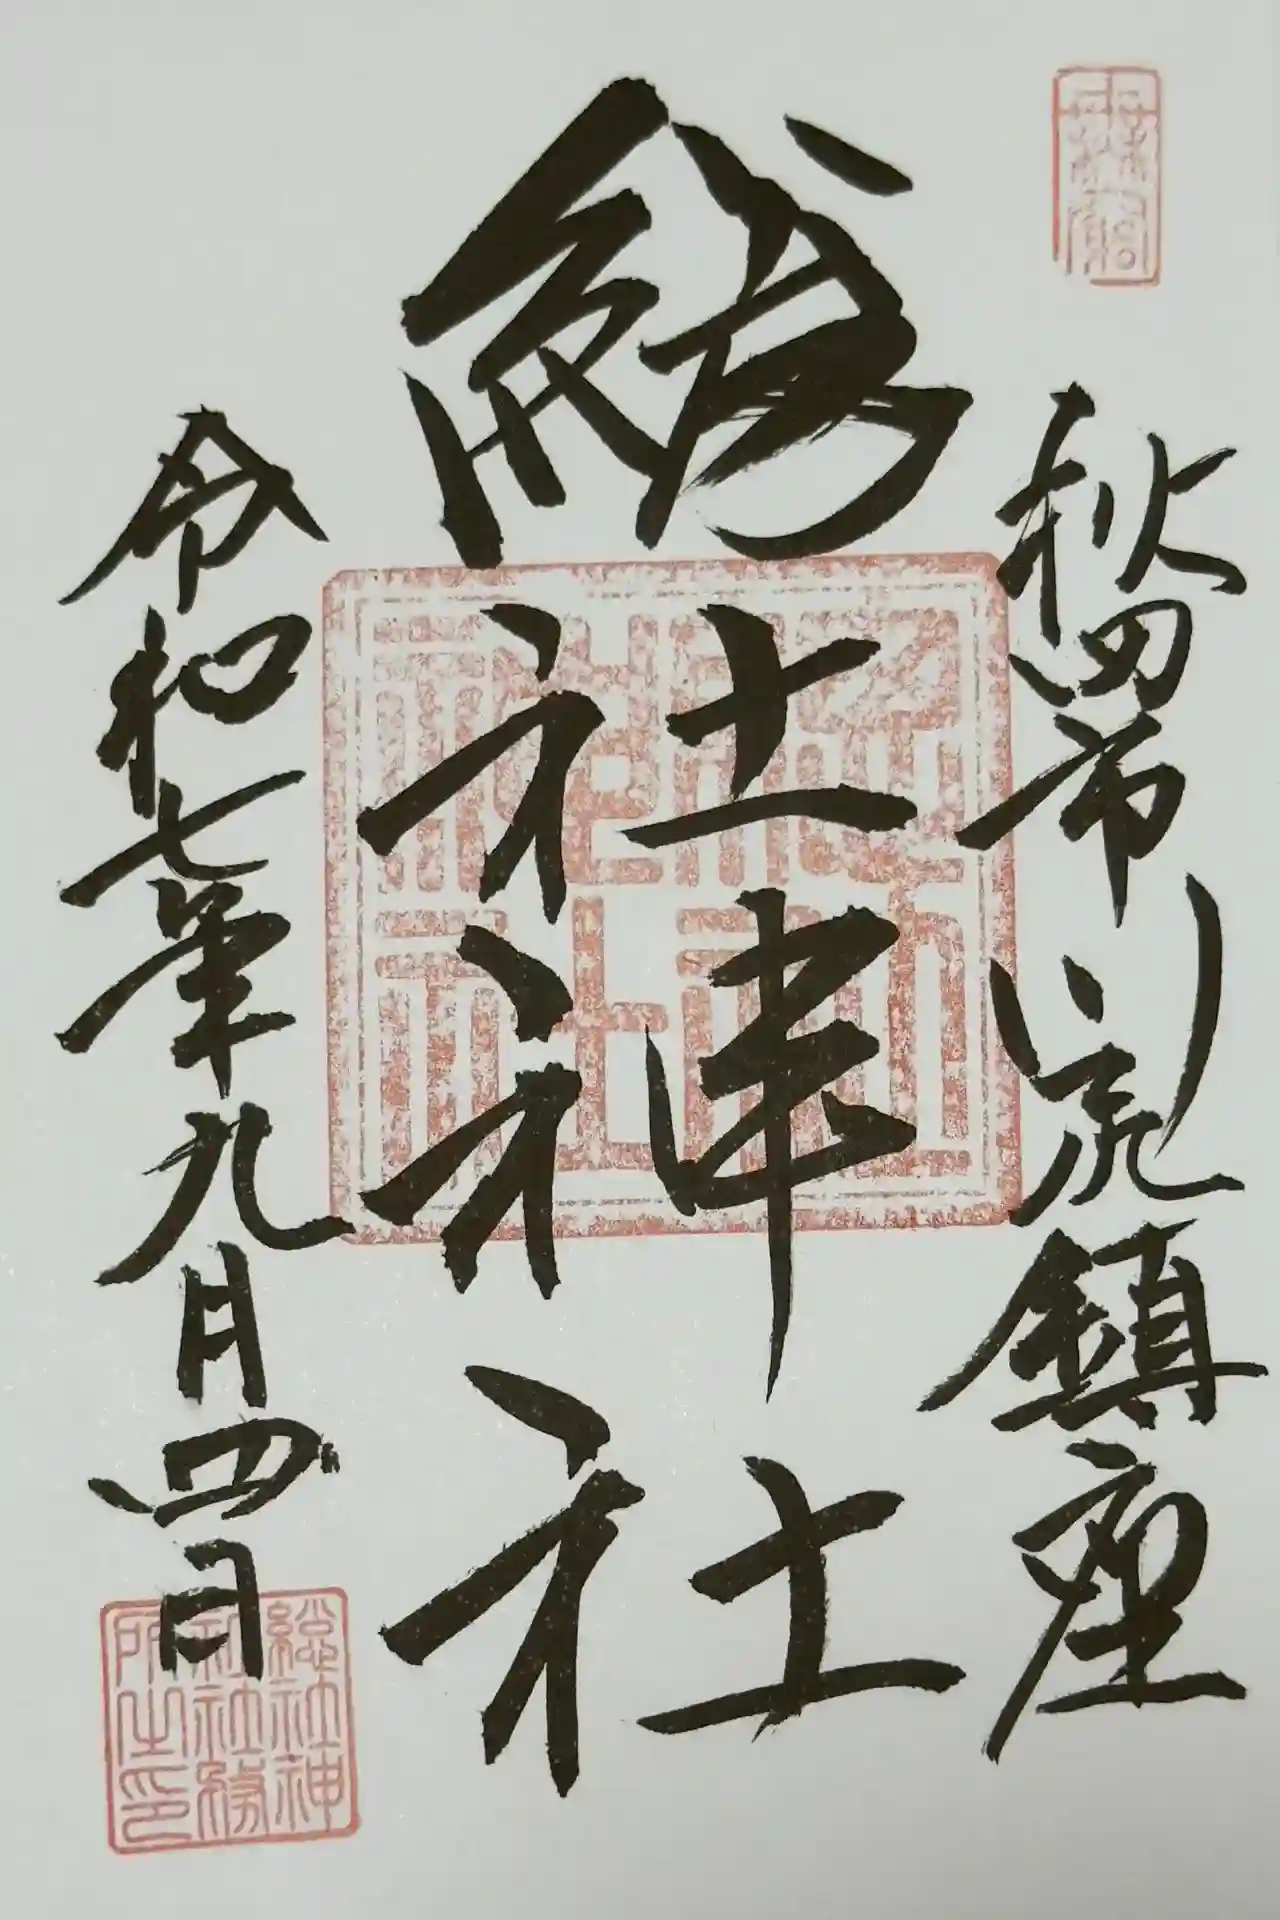 秋田市川尻鎮座
総社神社
令和七年九月四日
総社神
社社務
所之印